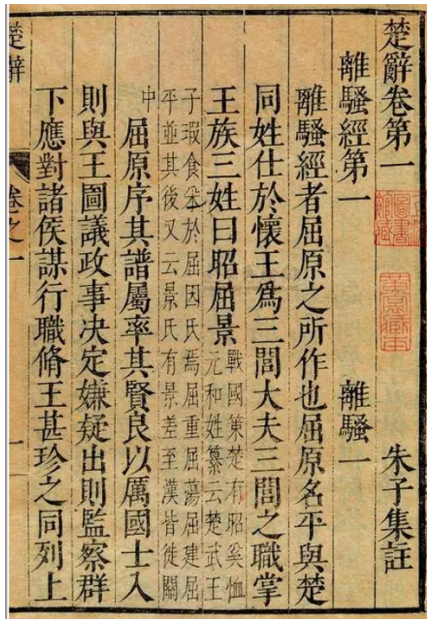 楚辭卷第一 朱子集註
離騷經第一 離騷一
離騷經者屈原之所作也屈原名平與楚
同姓仕於懷王爲三閭大夫三閭之職掌
王族三姓曰昭屈景 戰國策楚有昭奚恤
元和姓纂云楚武王
子瑕食采於屈因氏焉屈重屈蕩屈建屈
平並其後又云景氏有景差至漢皆徙關
中 屈原序其譜屬率其賢良以厲國士入
則與王圖議政事決定嫌疑出則監察群
下應對諸侯謀行職脩王甚珍之同列上
楚辭 卷之一 一